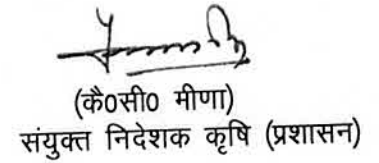 (कै0सी0 मीणा)
संयुक्त निदेशक कृषि (प्रशासन)